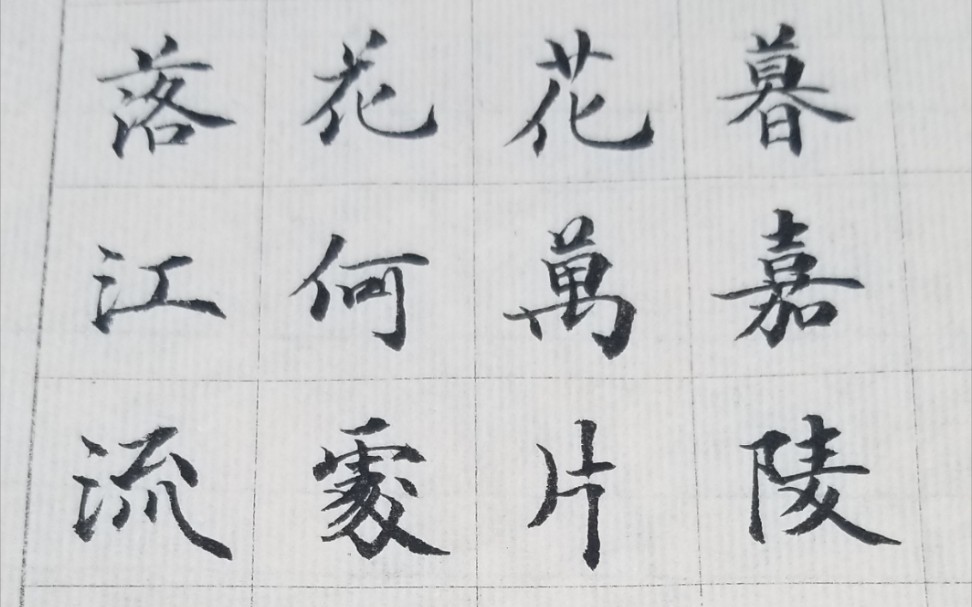 暮嘉陵
花萬片
花何處
落江流